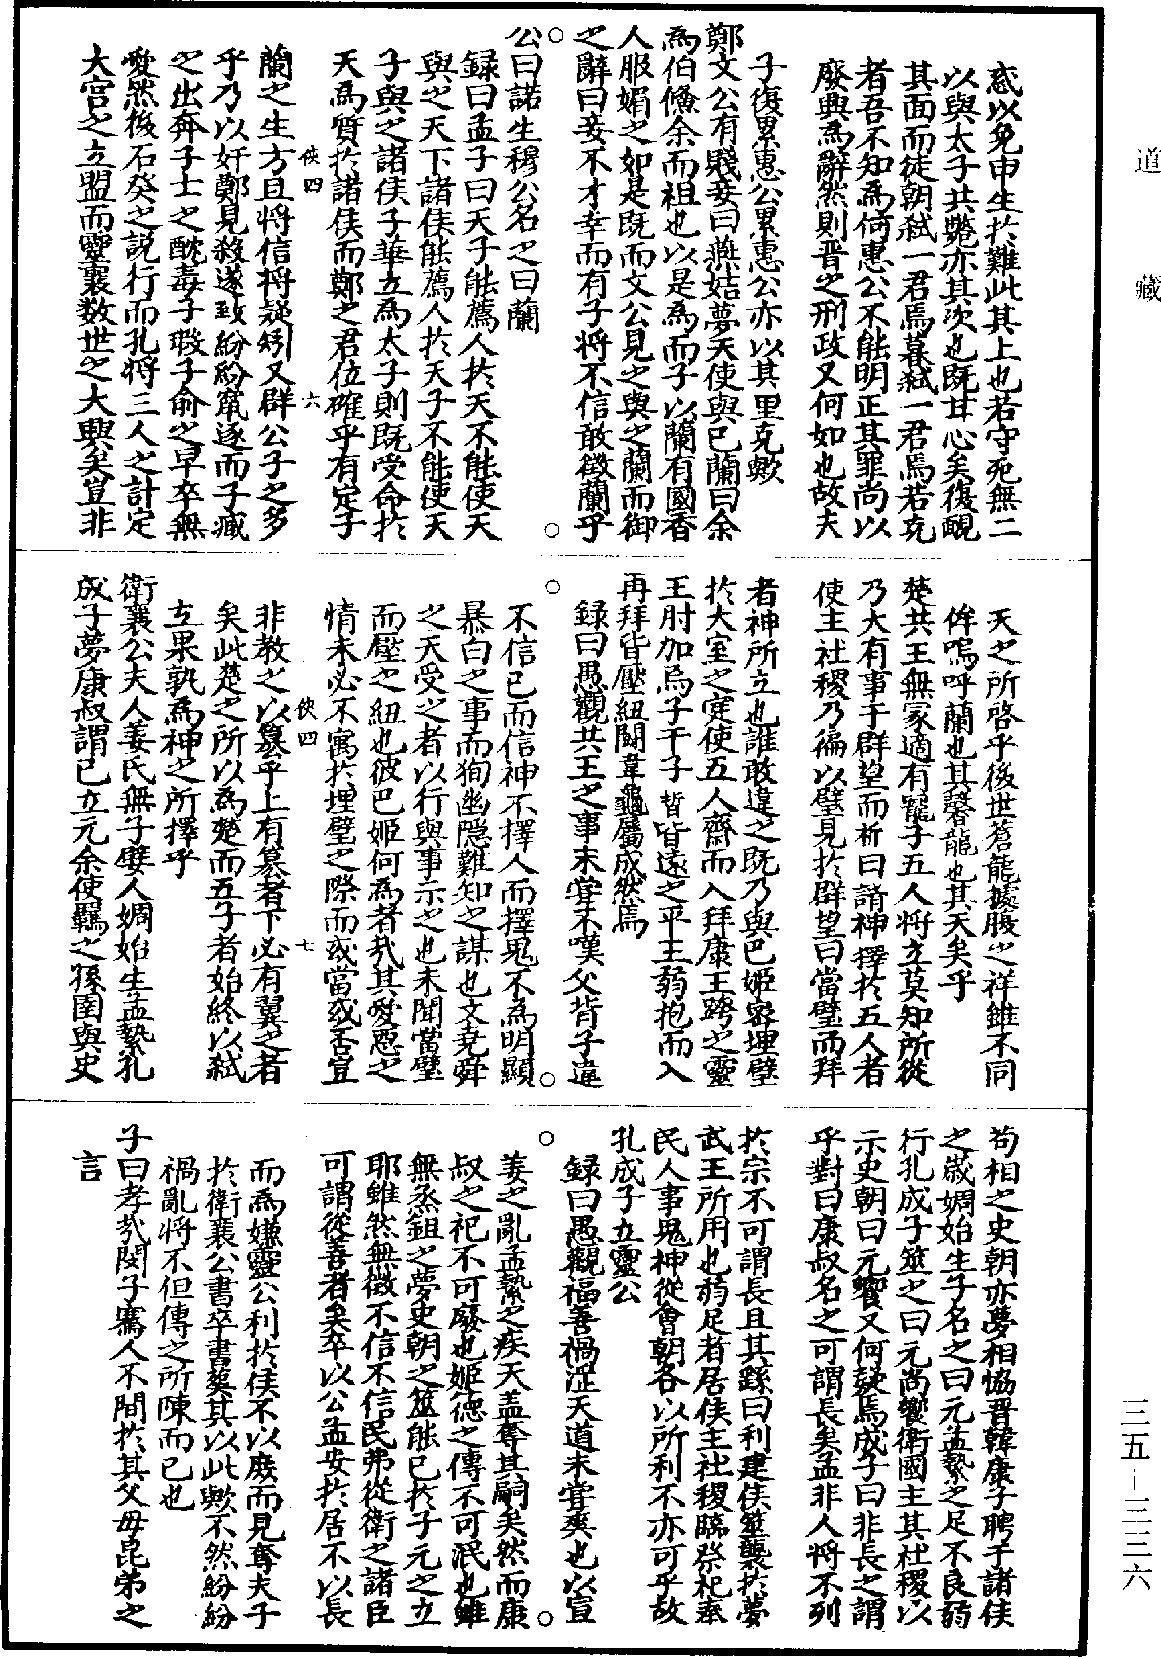 惑以免申生於難此其上也若守死無二
以與太子共斃亦其次也既甘心矣復靦
其面而徒朝弒一君焉暮弒一君焉若克
者吾不知為何惠公不能明正其罪尚以
廢興為辭然則晉之刑政又何如也故夫
子復累惠公累惠公亦以其里克歟
鄭文公有賤妾曰燕姞夢天使與己蘭曰余
為伯儵余而祖也以是為而子以蘭有國香
人服媚之如是既而文公見之與之蘭而御
之辭曰妾不才幸而有子將不信敢徵蘭乎
公曰諾生穆公名之曰蘭
錄曰孟子曰天子能薦人於天不能使天
與之天下諸侯能薦人於天子不能使天
子與之諸侯子華立為太子則既受命於
天為質於諸侯而鄭之君位確乎有定子
俠四
六
蘭之生方且將信將疑矧又群公子之多
乎乃以奸鄭見殺遂致紛紛竄逐而子臧
之出奔子士之酖毒子瑕子俞之早卒無
愛然後石癸之說行而孔將三人之計定
大宮之立盟而靈襄数世之大興矣豈非
天之所啓乎後世蒼龍據腹之祥雖不同
侔嗚呼蘭也其馨龍也其天矣乎
楚共王無冢適有寵子五人將立莫知所從
乃大有事于群望而祈曰請神擇於五人者
使主社稷乃徧以璧見於群望曰當璧而拜
者神所立也誰敢違之既乃與巴姬密埋璧
於大室之庭使五人齋而入拜康王跨之靈
王肘加焉子干子晳皆遠之平王弱抱而入
再拜皆壓紐鬬韋龜屬成然焉
錄曰愚觀共王之事未嘗不嘆父背子違
不信已而信神不擇人而擇鬼不為明顯
暴白之事而狥幽隱難知之謀也文堯舜
之天受之者以行與事示之也未聞當璧
而壓之紐也彼巴姬何為者哉其愛惡之
情未必不寓於埋璧之際而或當或否豈
俠四
七
非教之以篡乎上有篡者下必有翼之者
矣此楚之所以為楚而五子者始終以弒
立果孰為神之所擇乎
衛襄公夫人姜氏無子嬖人婤姶生孟縶孔
成子夢康叔謂己立元余使羈之孫圉與史
苟相之史朝亦夢相協晉韓康子聘于諸侯
之歲婤姶生子名之曰元孟縶之足不良弱
行孔成子筮之曰元尚饗衛國主其社稷以
示史朝曰元饗又何疑焉成子曰非長之謂
乎對曰康叔名之可謂長矣孟非人將不列
於宗不可謂長且其繇曰利建侯筮襲於夢
武王所用也弱足者居侯主社稷臨祭祀奉
民人事鬼神從會朝各以所利不亦可乎故
孔成子立靈公
錄曰愚觀福善禍淫天道未嘗爽也以宣
姜之亂孟縶之疾天蓋奪其嗣矣然而康
叔之祀不可廢也姬德之傳不可泯也雖
無烝鉏之夢史朝之筮能已於子元之立
耶雖然無徵不信不信民弗從衛之諸臣
可謂從善者矣卒以公孟安於居不以長
而為嫌靈公利於侯不以廢而見奪夫子
於衛襄公書卒書葬其以此歟不然紛紛
禍亂將不但傳之所陳而已也
子曰孝哉閔子騫人不間於其父母昆弟之
言
道藏
三五-三三六